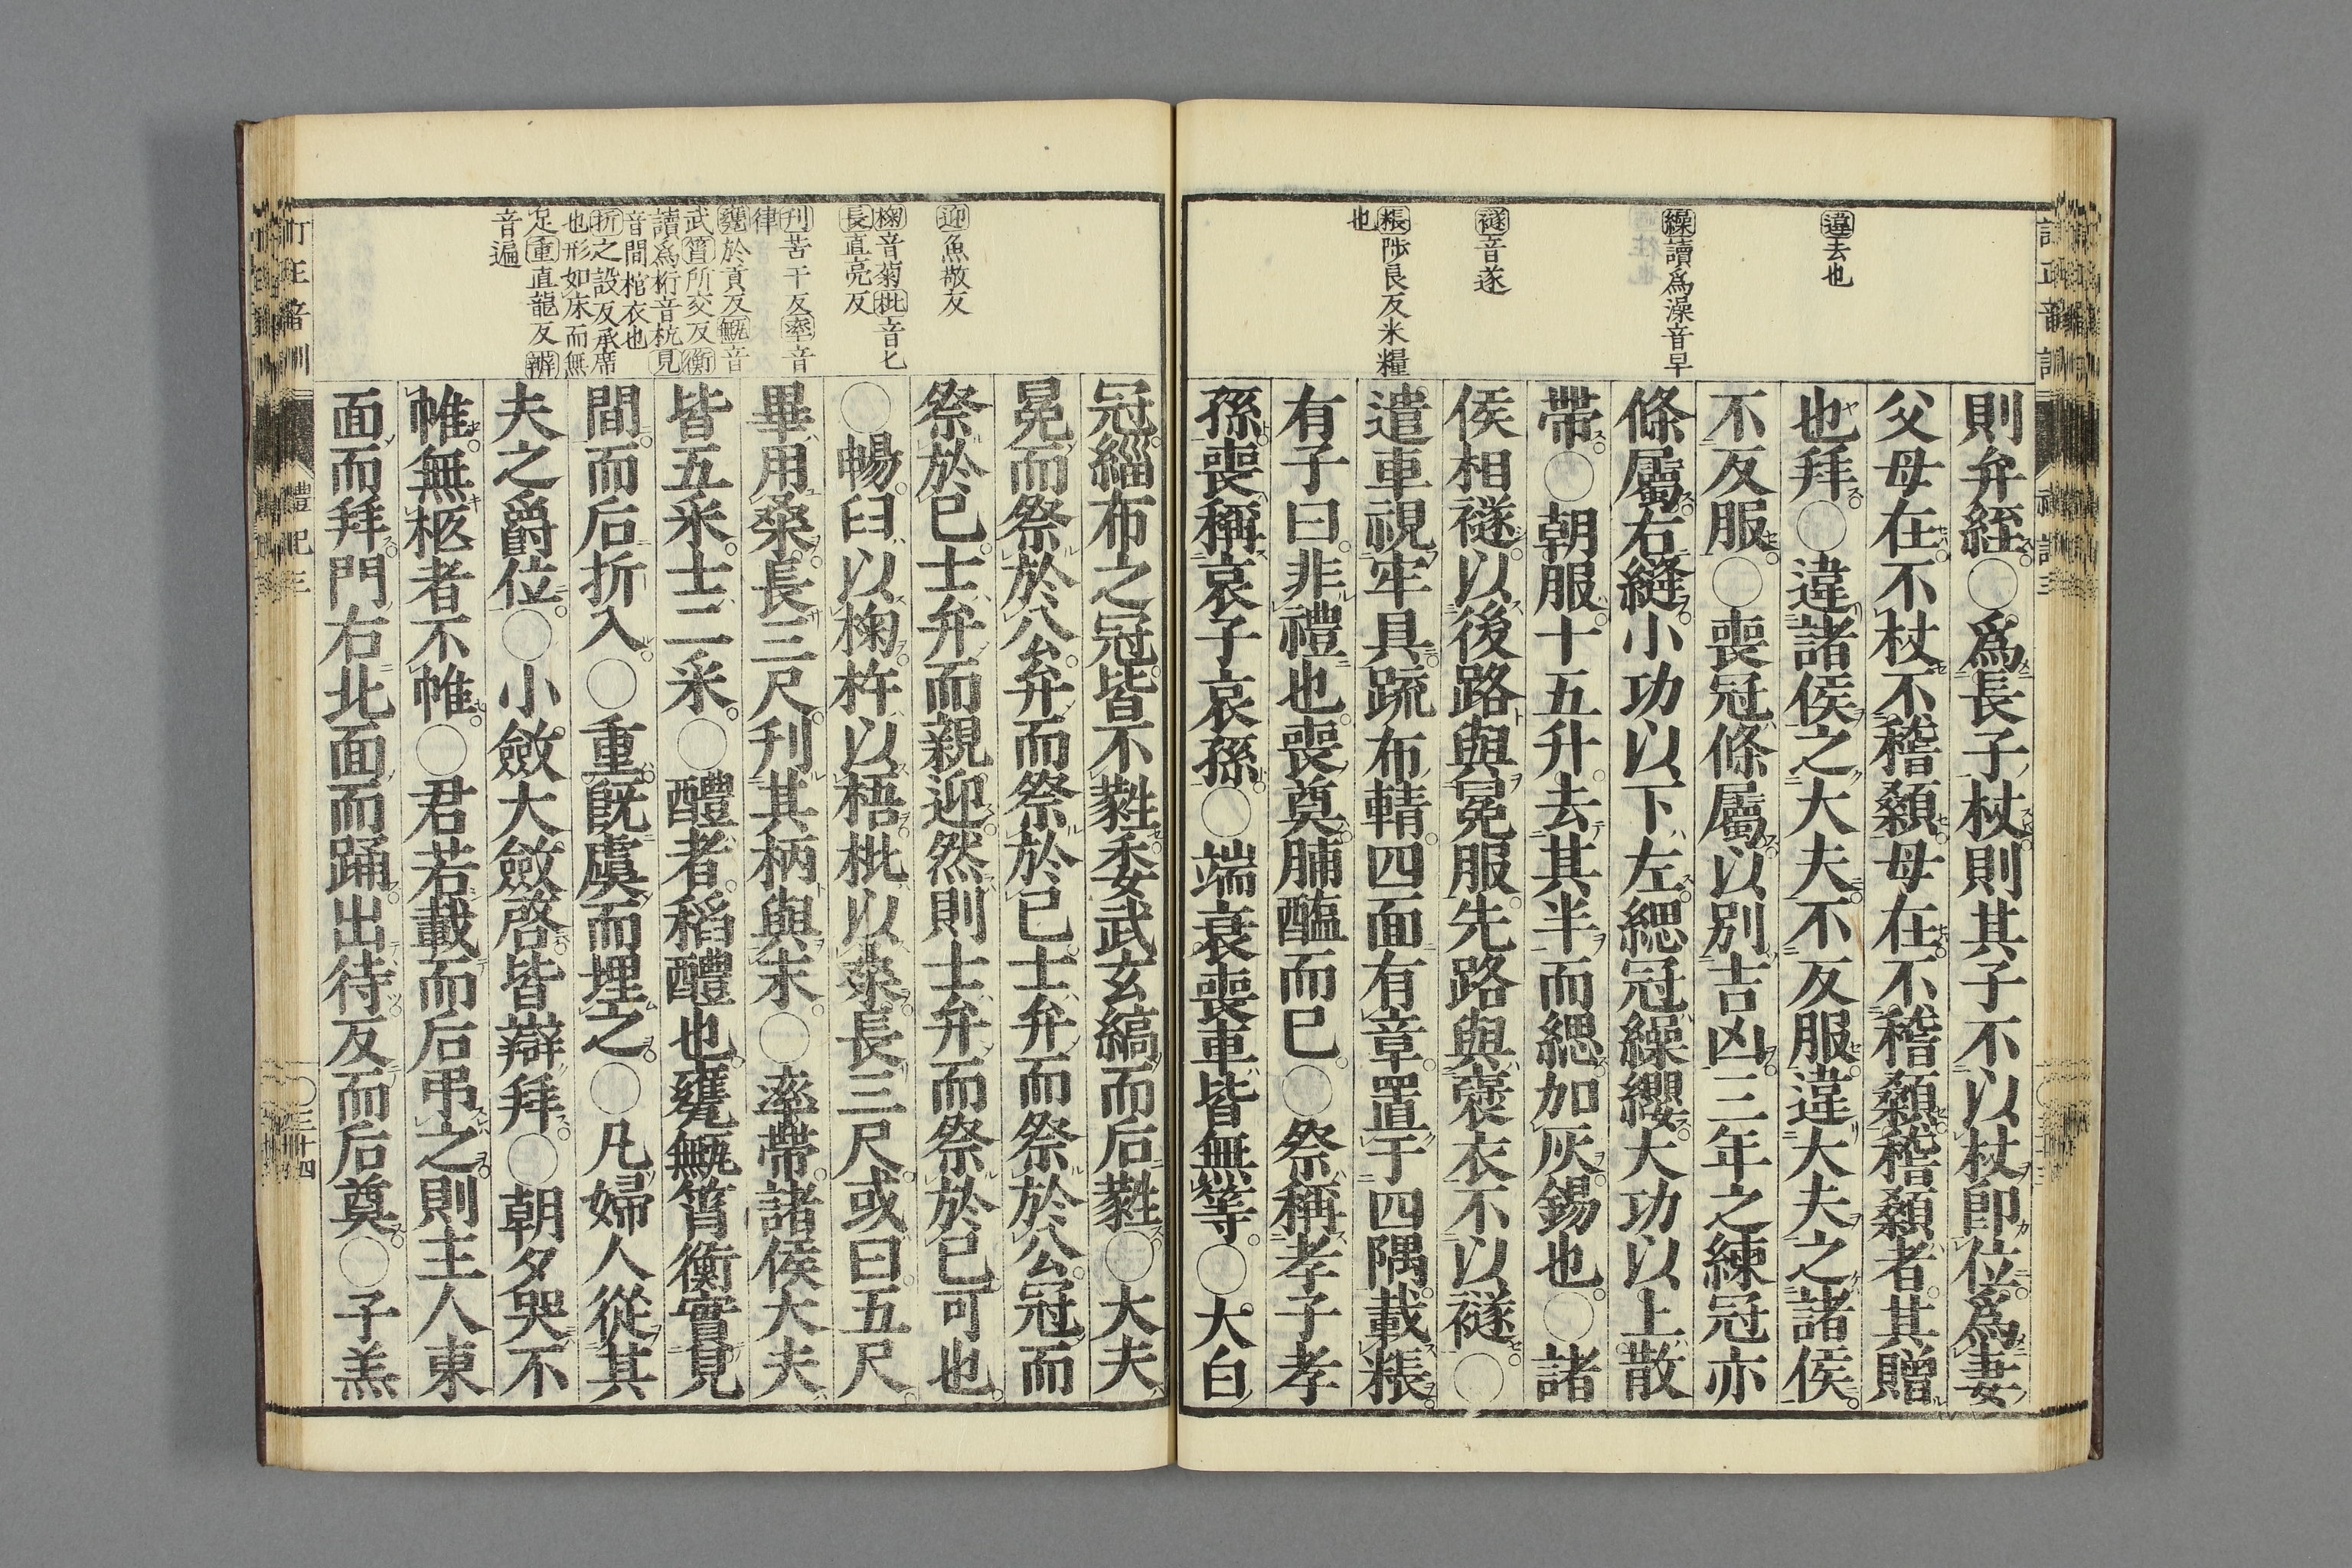 違去也
繰讀爲澡音早
襚音遂
粻陟良反米糧
也
則弁絰○爲長子杖則其子不以杖即位爲妻
父母在不杖不稽顙母在不稽顙稽顙者其贈
也拜○違諸侯之大夫不反服違大夫之諸侯
不反服○喪冠條屬以別吉凶三年之練冠亦
條屬右縫小功以下左緦冠繰纓大功以上散
帶○朝服十五升去其半而緦加灰錫也○諸
侯相襚以後路與冕服先路與襃衣不以襚○
遣車視牢具疏布輤四面有章置于四隅載粻
有子曰非禮也喪奠脯醢而已○祭稱孝子孝
孫喪稱哀子哀孫○端衰喪車皆無等○大白
迎魚敬友
椈音菊枇音匕
長直亮反
刊苦干反率音
律
甕於貢反甒音
武筲所交反衡
讀爲桁音杭見
音間棺衣也
折之設反承席
也形如床而無
足重直龍反辨
音遍
冠緇布之冠皆不蕤委武玄縞而后蕤○大夫
冕而祭於公弁而祭於已士弁而祭於公冠而
祭於已士弁而親迎然則士弁而祭於已可也
○暢臼以椈杵以梧枇以桑長三尺或曰五尺
畢用桑長三尺刊其柄與末○率帶諸侯大夫
皆五采士二采○醴者稻醴也甕甒筲衡實見
間而后折入○重既虞而埋之○凡婦人從其
夫之爵位○小斂大斂啓皆辯拜○朝夕哭不
帷無柩者不帷○君若載而后弔之則主人東
面而拜門右北面而踊出待反而后奠○子羔
訂正音訓
禮記三
○三十四